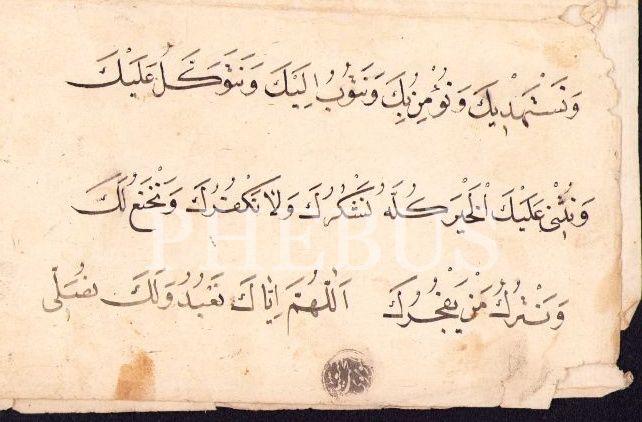 وَنَسْتَهْدِيكَ وَنُؤْمِنُ بِكَ وَنَتُوْبُ اِلَيْكَ وَنَتَوَكَّلُ عَلَيْكَ
وَنُثْنِي عَلَيْكَ الْخَيْرَ كُلَّهُ نَشْكُرُكَ وَلَا نَكْفُرُكَ وَنَخْنَعُ لَكَ
وَنَتْرُكُ مَنْ يَفْجُرُكَ اَللّٰهُمَّ اِيَّاكَ نَعْبُدُ وَلَكَ نُصَلِّى
PHEBUS